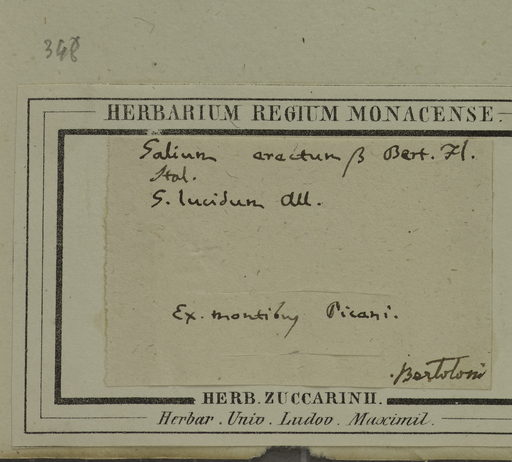 348
HERBARIUM REGIUM MONACENSE.
Galium erectum β Bert. Fl.
Ital.
G. lucidum All.
Ex montibus Piceni.
Bertoloni
HERB. ZUCCARINII.
Herbar. Univ. Ludov. Maximil.